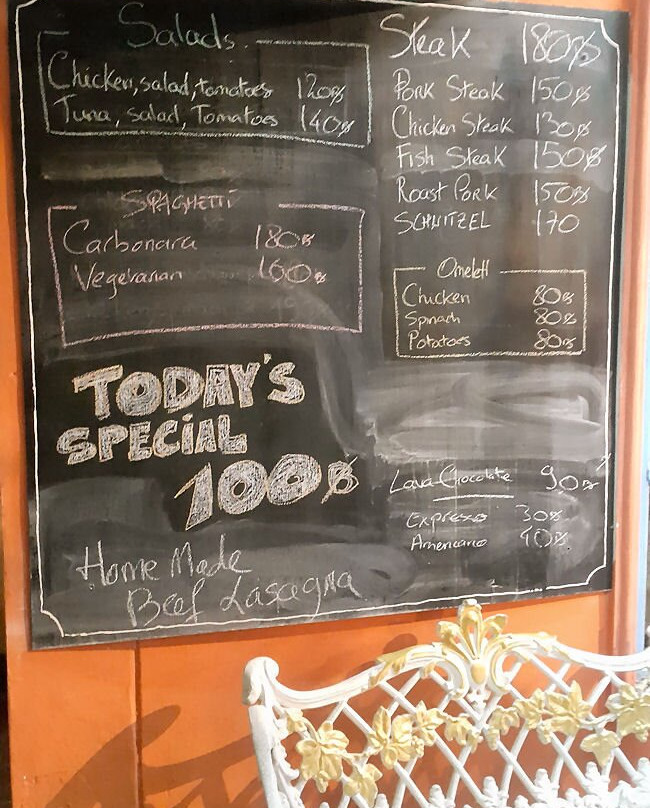 Salads
Chicken, salad, tomatoes 120฿
Tuna, salad, Tomatoes 140฿
SPAGHETTI
Carbonara 180฿
Vegetarian 160฿
TODAY'S
SPECIAL
100฿
Home Made
Beef Lasagna
Steak 180฿
Pork Steak 150฿
Chicken Steak 130฿
Fish Steak 150฿
Roast Pork 150฿
SCHNITZEL 170
Omelett
Chicken 80฿
Spinach 80฿
Potatoes 80฿
Lava Chocolate 90฿
Expresso 30฿
Americano 40฿